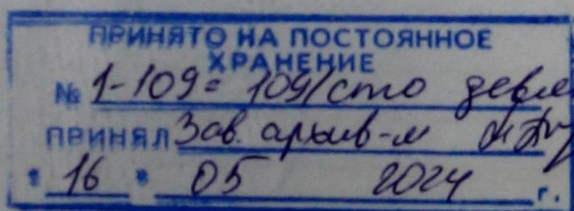 ПРИНЯТО НА ПОСТОЯННОЕ
ХРАНЕНИЕ
№ 1-109= 109/сто девя
ПРИНЯЛ Зав. архив-м
" 16 " 05 2024 г.